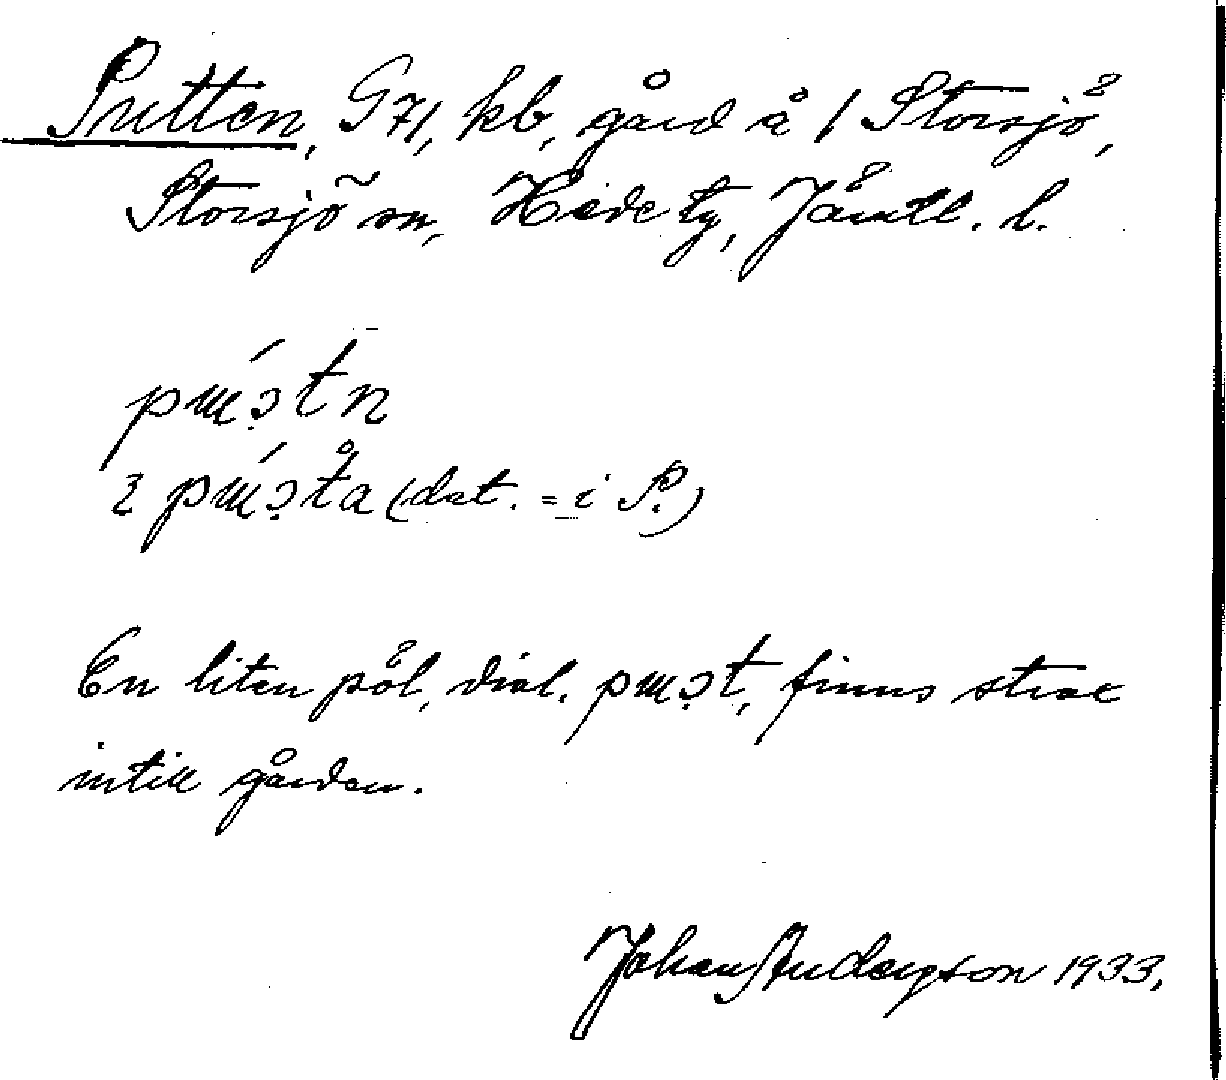 Putten, G71, kb, gård å 1 Storsjö,
Storsjö sn, Hede tg, Jämtl. l.
(dat. = i P.)
En liten pöl, dial. finns strax
intill gården.
Johan Anderzson 1933.